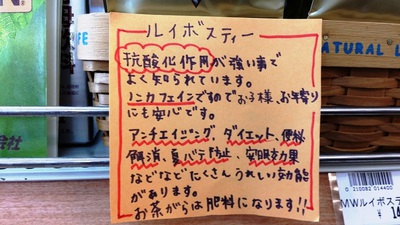 ルイボスティー
抗酸化作用が強い事で
よく知られています。
ノンカフェインですのでお子様、お年寄り
にも安心です。
アンチエイジング、ダイエット、便秘
解消、夏バテ防止、安眠効果
などなどたくさんうれしい効能
があります。
お茶がらは肥料になります!!
NATURAL L
会社
0 210082 014400
MWルイボステ